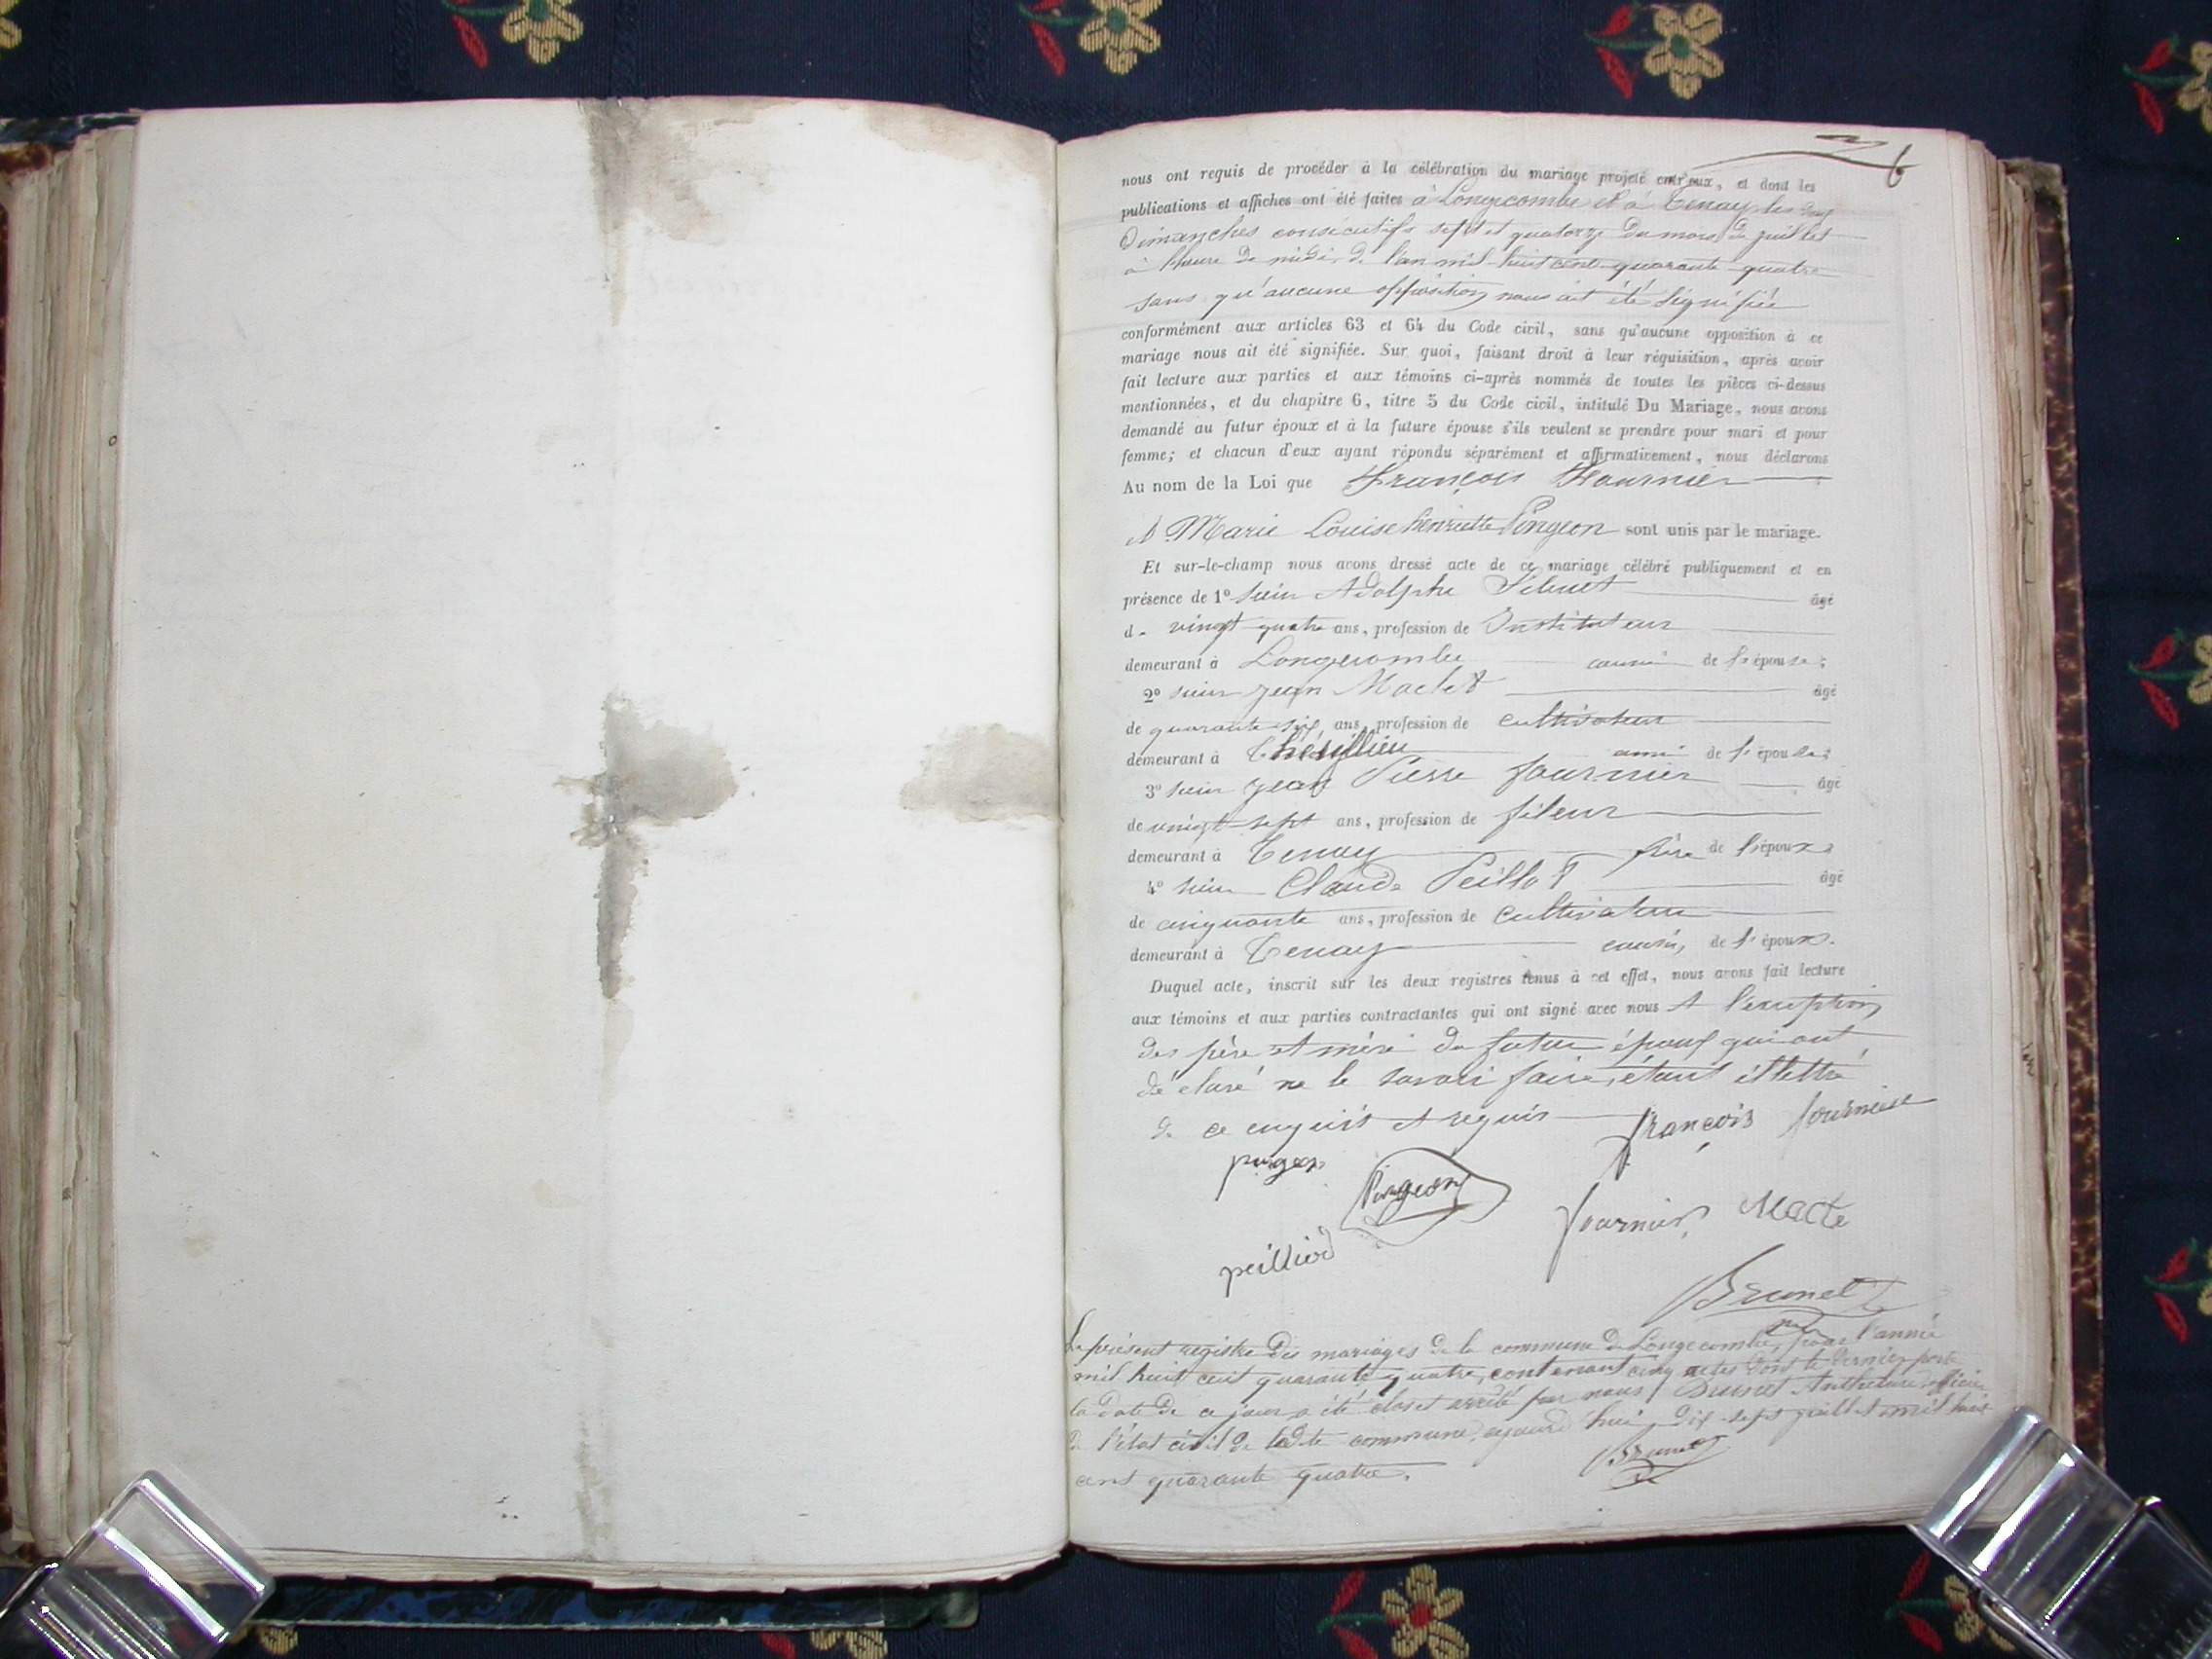 nous ont requis de procéder à la célébration du mariage projeté entr'eux, et dont les
publications et affiches ont été faites à Longecombe et à Tenay les deux
Dimanches consécutifs sept et quatorze du mois de juillet
à l'heure de midi, de l'an mil huit cent quarante quatre
sans qu'aucune opposition nous ait été signifiée
conformément aux articles 63 et 64 du Code civil, sans qu'aucune opposition à ce
mariage nous ait été signifiée. Sur quoi, faisant droit à leur réquisition, après avoir
fait lecture aux parties et aux témoins ci-après nommés de toutes les pièces ci-dessus
mentionnées, et du chapitre 6, titre 5 du Code civil, intitulé Du Mariage, nous avons
demandé au futur époux et à la future épouse s'ils veulent se prendre pour mari et pour
femme; et chacun d'eux ayant répondu séparément et affirmativement, nous déclarons
Au nom de la Loi que François Fournier
et Marie Louise henriette Pingeon sont unis par le mariage.
Et sur-le-champ nous avons dressé acte de ce mariage célébré publiquement et en
présence de 1º sieur Adolphe âgé
de vingt quatre ans, profession de Instituteur
demeurant à Longecombe cousin de l'épouse;
2º sieur jean Maclet âgé
de quarante six ans, profession de cultivateur
demeurant à ami de l'épouse;
3º sieur jean Pierre fournier âgé
de vingt sept ans, profession de fileur
demeurant à Tenay frère de l'époux;
4º sieur Claude Peillot âgé
de cinquante ans, profession de cultivateur
demeurant à Tenay cousin, de l'époux.
Duquel acte, inscrit sur les deux registres tenus à cet effet, nous avons fait lecture
aux témoins et aux parties contractantes qui ont signé avec nous A l'exception
des père et mère du futur époux qui ont
déclaré ne le savoir faire, étant illettré
de ce enquis et requis françois fournier
pingeon Pingeon
fournier Macle
peilliod
Brunet
Le présent registre des mariages de la commune de Longecombe, pour l'année
mil huit cent quarante quatre, contenant cinq actes dont le dernier porte
la date de ce jour a été clos et arrêté par nous Brunet Anthelme officier
de l'état civil de ladite commune, aujourd'hui dix-sept juillet mil huit
cent quarante quatre.
Brunet